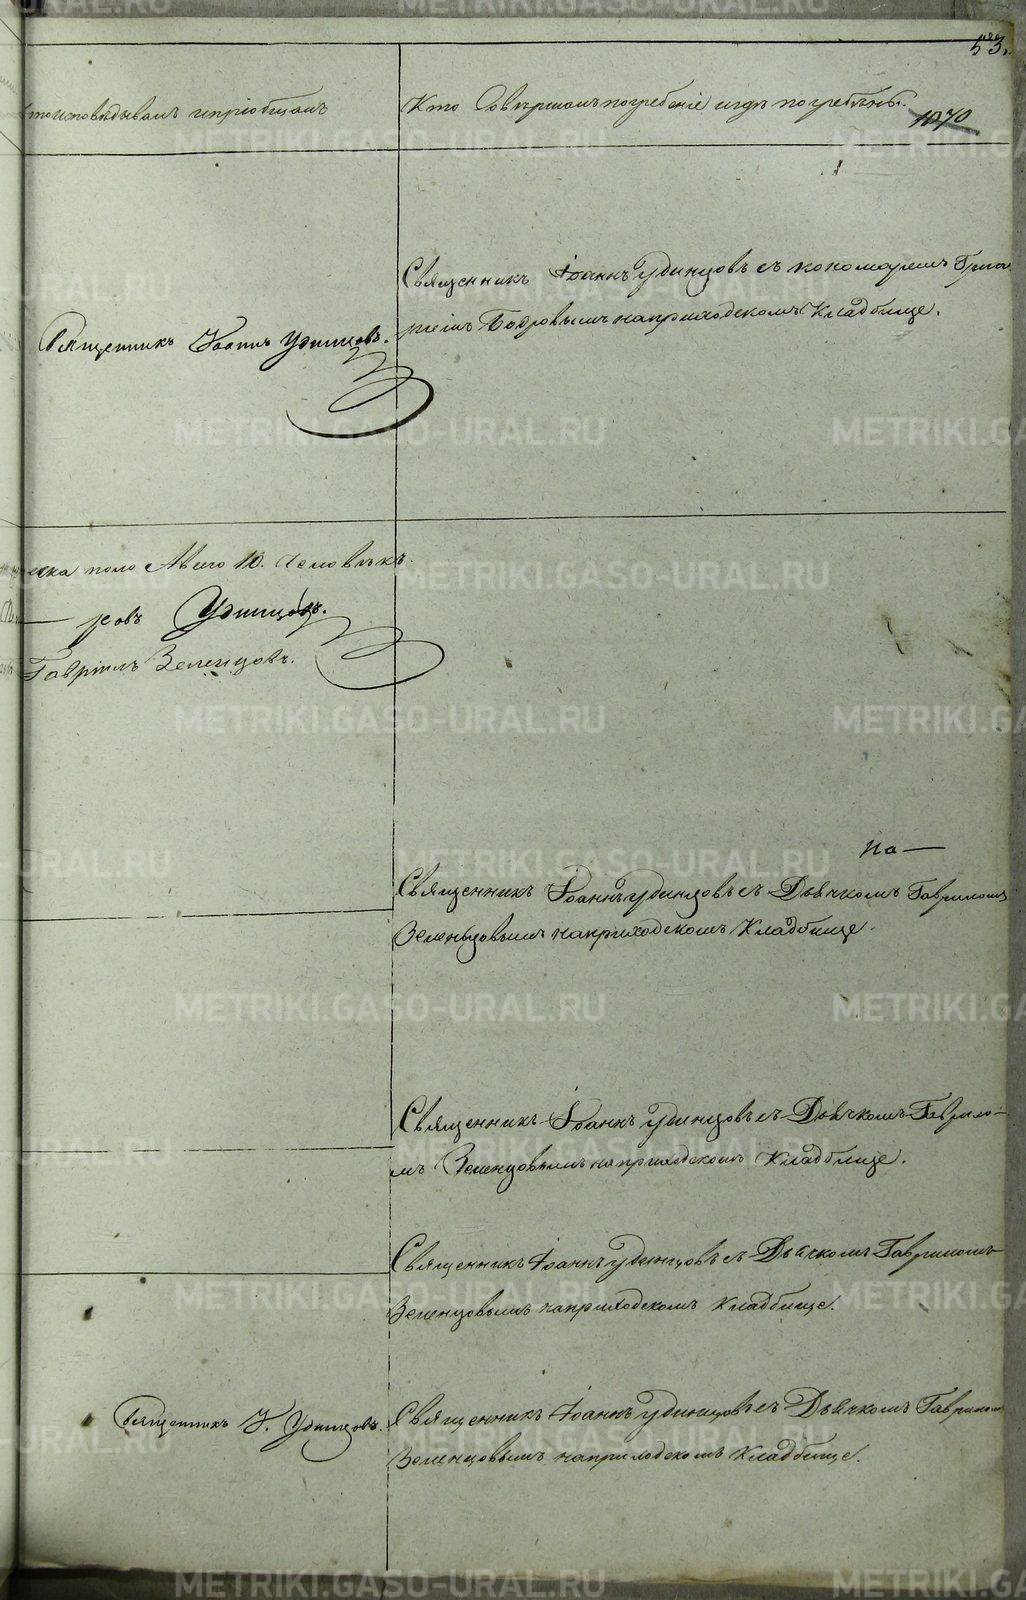 53.
Кто исповѣдывалъ и пріобщалъ
Кто Совершалъ погребеніе и гдѣ погребены.
1070
Священникъ Іоаннъ Удинцовъ.
Священникъ Іоаннъ Удинцовъ съ пономаремъ Григо-
ріемъ Бодровымъ на приходскомъ Кладбище.
ска пола А всего 10. Человѣкъ.
Удинцовъ.
Гавріилъ Зеленцовъ.
На—
Священникъ Іоаннъ Удинцовъ съ Дьячкомъ Гавриломъ
Зеленцовымъ на приходскомъ Кладбище.
Священникъ Іоаннъ Удинцовъ съ Дьячкомъ Гаврило-
мъ Зеленцовымъ на приходскомъ Кладбище.
Священникъ Іоаннъ Удинцовъ съ Дьячкомъ Гавриломъ
Зеленцовымъ на приходскомъ Кладбище.
Священникъ І. Удинцовъ.
Священникъ Іоаннъ Удинцовъ съ Дьячкомъ Гавриломъ
Зеленцовымъ на приходскомъ Кладбище.
METRIKI.GASO-URAL.RU